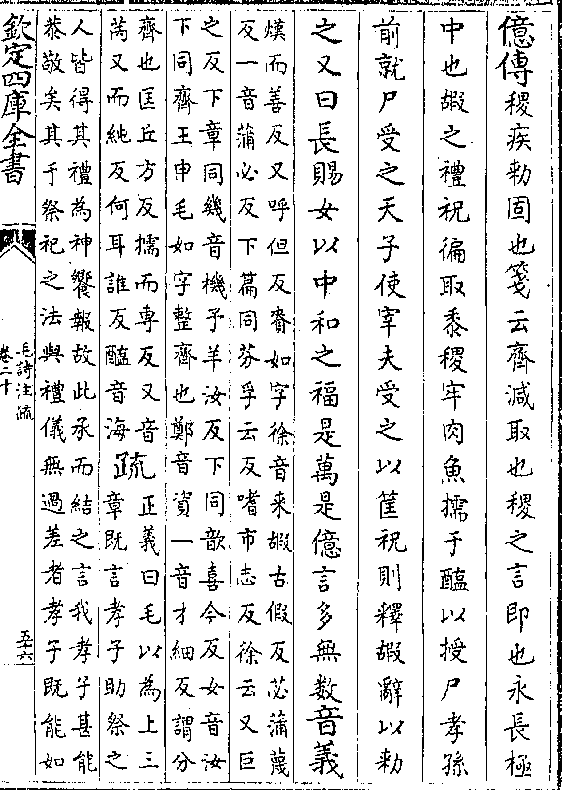 億傳稷疾勅固也箋云齊減取也稷之言即也永長極
中也嘏之禮祝徧取黍稷牢肉魚擩于醢以授尸孝孫
前就尸受之天子使宰夫受之以筐祝則釋嘏辭以勅
之又曰長賜女以中和之福是萬是億言多無數音義
熯而善反又呼但反賚如字徐音来嘏古假反苾蒲蔑
反一音蒲必反下篇同芬孚云反嗜市志反徐云又巨
之反下章同幾音機予羊汝反下同歆喜今反女音汝
下同齊王申毛如字整齊也鄭音資一音才細反謂分
齊也匡丘方反擩而専反又音
芮又而純反何耳誰反醢音海
疏
正義曰毛以為上三
章既言孝子助祭之
人皆得其禮為神饗報故此承而結之言我孝子甚能
恭敬矣其于祭祀之法與禮儀無過差者孝子既能如
欽定四庫全書
毛詩注疏
卷二十
五十六